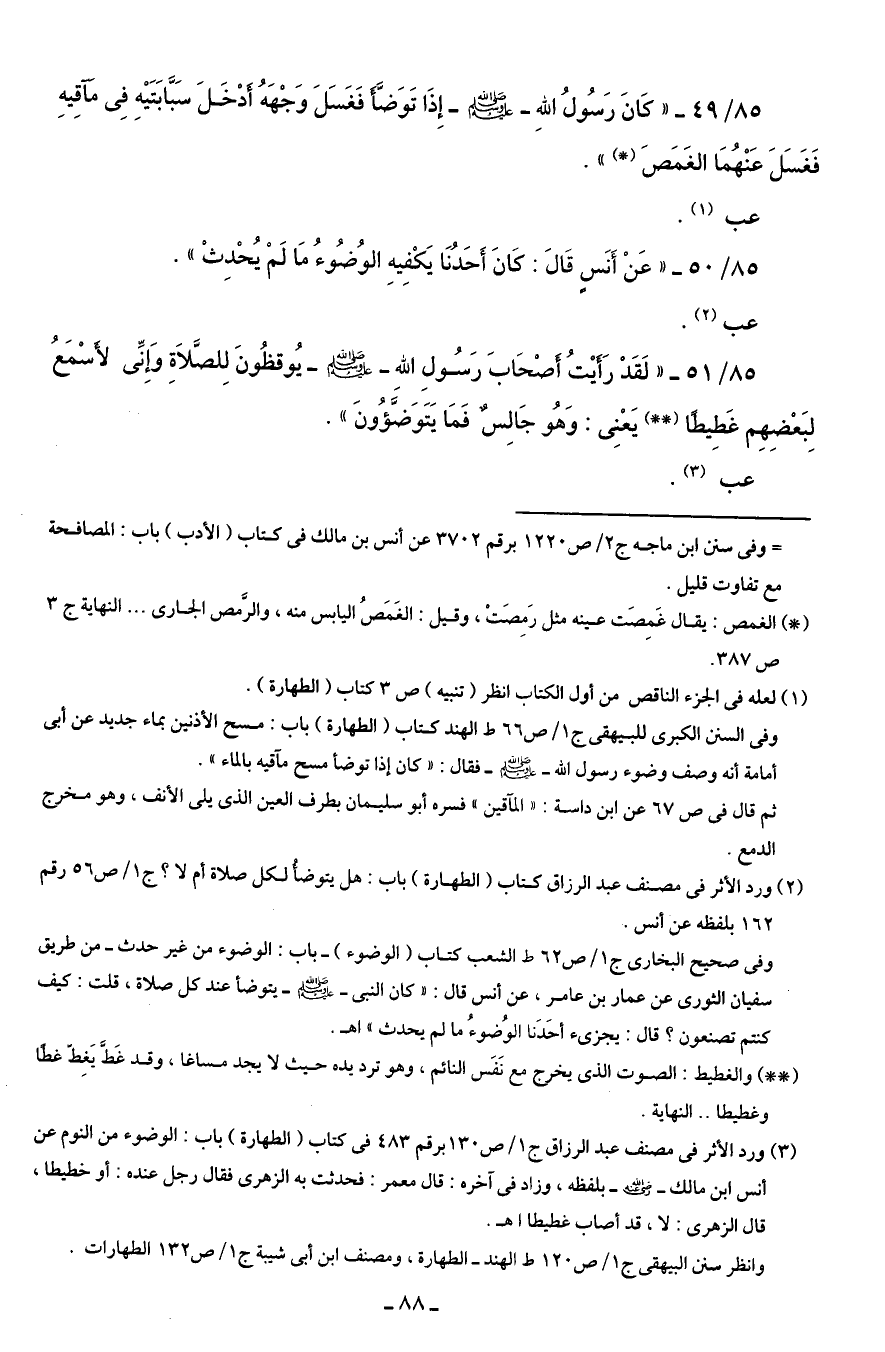 ٨٥/ ٤٩ ـ « كَانَ رَسُولُ اللهِ ـ ﷺ ـ إِذَا تَوَضَّأَ فَغَسَلَ وَجْهَهُ أَدْخَـلَ سَبَّابَتَيْهِ فِى مَآقِيهِ
فَغَسَلَ عَنْهُمَا الغَمَصَ (*) » .
عب (١) .
٨٥/ ٥٠ ـ « عَنْ أَنَسٍ قَالَ : كَانَ أَحَدُنَا يَكْفِيهِ الوُضُوءُ مَا لَمْ يُحْدِثْ » .
عب (٢) .
٨٥/ ٥١ ـ « لَقَدْ رَأَيْتُ أَصْحَابَ رَسُـولِ اللهِ ـ ﷺ ـ يُوقظُونَ لِلصَّلاَةِ وَإِنِّى لأَسْمَعُ
لِبَعْضِهِم غَطِيطًا (**) يَعْنِى : وَهُو جَالِسٌ فَمَا يَتَوَضَّؤُونَ » .
عب (٣) .
= وفى سنن ابن ماجـه ج٢/ ص١٢٢٠ برقم ٣٧٠٢ عن أنس بن مالك فى كتاب ( الأدب ) باب : المصافحة
مع تفاوت قليل .
(*) الغمص : يقـال غَمِصَت عـينه مثل رَمِصَتْ ، وقـيل : الغَمَصُ اليابس منه ، والرَّمص الجـارى ... النهاية ج ٣
ص ٣٨٧.
(١) لعله فى الجزء الناقص من أول الكتاب انظر ( تنبيه ) ص ٣ كتاب ( الطهارة ) .
وفى السنن الكبرى للبـيهقى ج١/ ص٦٦ ط الهند كـتاب ( الطهارة ) باب : مـسح الأذنين بماء جديد عن أبى
أمامة أنه وصف وضوء رسول الله ـ ﷺ ـ فقال : « كان إذا توضأ مسح مآقيه بالماء » .
ثم قال فى ص ٦٧ عن ابن داسـة : « المآقين » فسره أبو سليـمان بطرف العين الذى يلى الأنف ، وهو مـخرج
الدمع .
(٢) ورد الأثر فى مصـنف عبد الرزاق كـتاب ( الطهـارة ) باب : هل يتوضأُ لـكل صلاة أم لا ؟ ج١/ ص٥٦ رقم
١٦٢ بلفظه عن أنس .
وفى صحيح البخارى ج١/ ص٦٢ ط الشعب كتـاب ( الوضوء ) ـ باب : الوضوء من غير حدث ـ من طريق
سفيان الثورى عن عمار بن عامـر ، عن أنس قال : « كان النبى ـ ﷺ ـ يتوضأ عند كل صلاة ، قلت : كيف
كنتم تصنعون ؟ قال : يجزىء أحَدَنا الوُضوءُ ما لم يحدث » اهـ .
(**) والغطيط : الصـوت الذى يخرج مع نَفَس النائم ، وهو ترد يده حـيث لا يجد مـساغا ، وقـد غَطَّ يَغِطّ غطًا
وغطيطا .. النهاية .
(٣) ورد الأثر فى مصنف عبد الرزاق ج١/ ص١٣٠ برقم ٤٨٣ فى كتاب ( الطهارة ) باب : الوضوء من النوم عن
أنس ابن مالك ـ رضي الله عنه ـ بلفظه ، وزاد فى آخره : قال معمر : فحدثت به الزهرى فقال رجل عنده : أو خطيطا ،
قال الزهرى : لا ، قد أصاب غطيطا ا هـ .
وانظر سنن البيهقى ج١/ ص١٢٠ ط الهند ـ الطهارة ، ومصنف ابن أبى شيبة ج١/ ص١٣٢ الطهارات .
ـ ٨٨ ـ